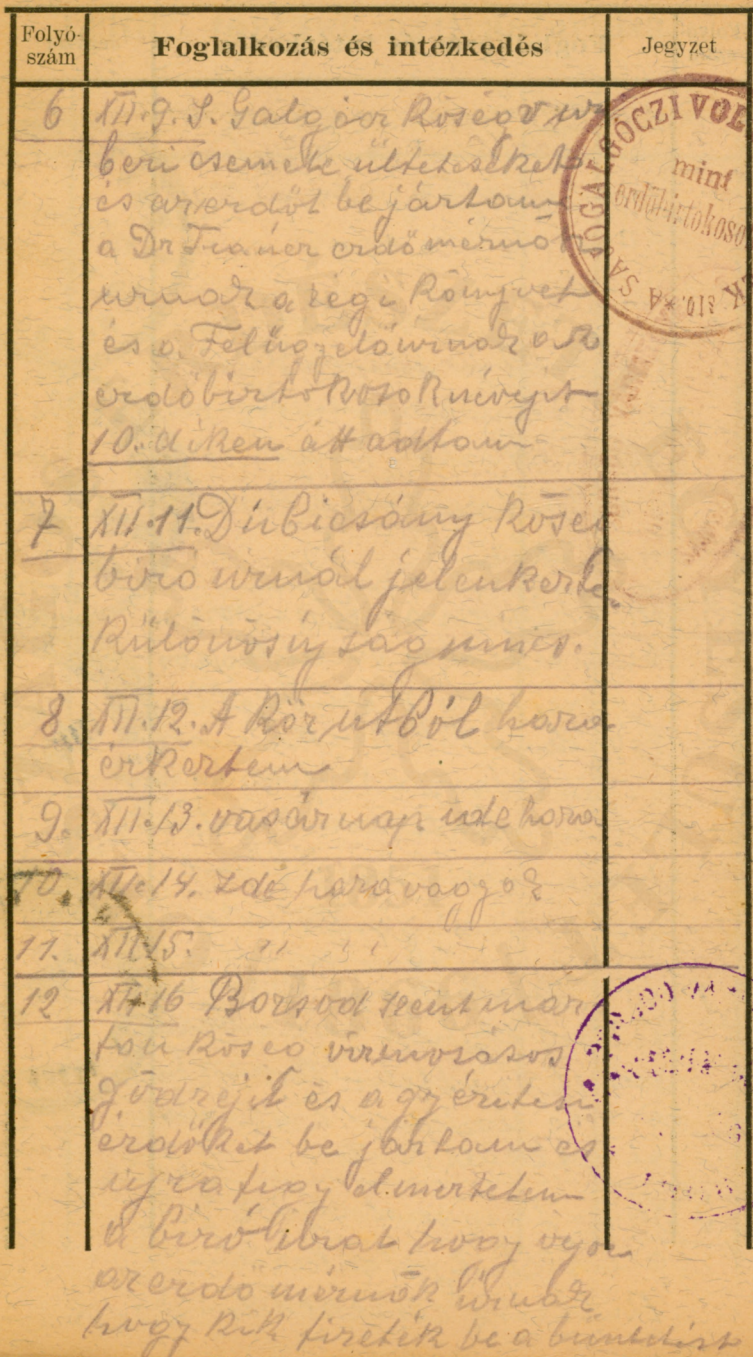 Folyó-
szám
Foglalkozás és intézkedés
Jegyzet
6 XII.9. S. Galgócz Község
beri csemete ültetéseket
és az erdőt be jártam
a Dr Trauer erdőmérnök
urnak a régi Könyvet
és a Felügyelőurnak az
erdőbirtokosok névejit
10.-diken átt adtam
7 XII.11. Dubicsány Község
biró urnál jelenkezte
Különös ujság nincs.
8 XII.12. A Kör utból haza
érkeztem
9. XII.13. vasárnap itde haza
10. XII.14. Idehaza vagyok
11. XII.15. " " "
12 XII.16 Borsod szent már
ton Község vizmosásos
gödrejit és a gyérítési
erdőket be jártam és
ujra figyelmeztetem
a biró urat hogy
az erdő mérnök urnak
hogy kik fizeték be a büntetést
SAJÓGALGÓCZI VOL
mint
erdőbirtokoso